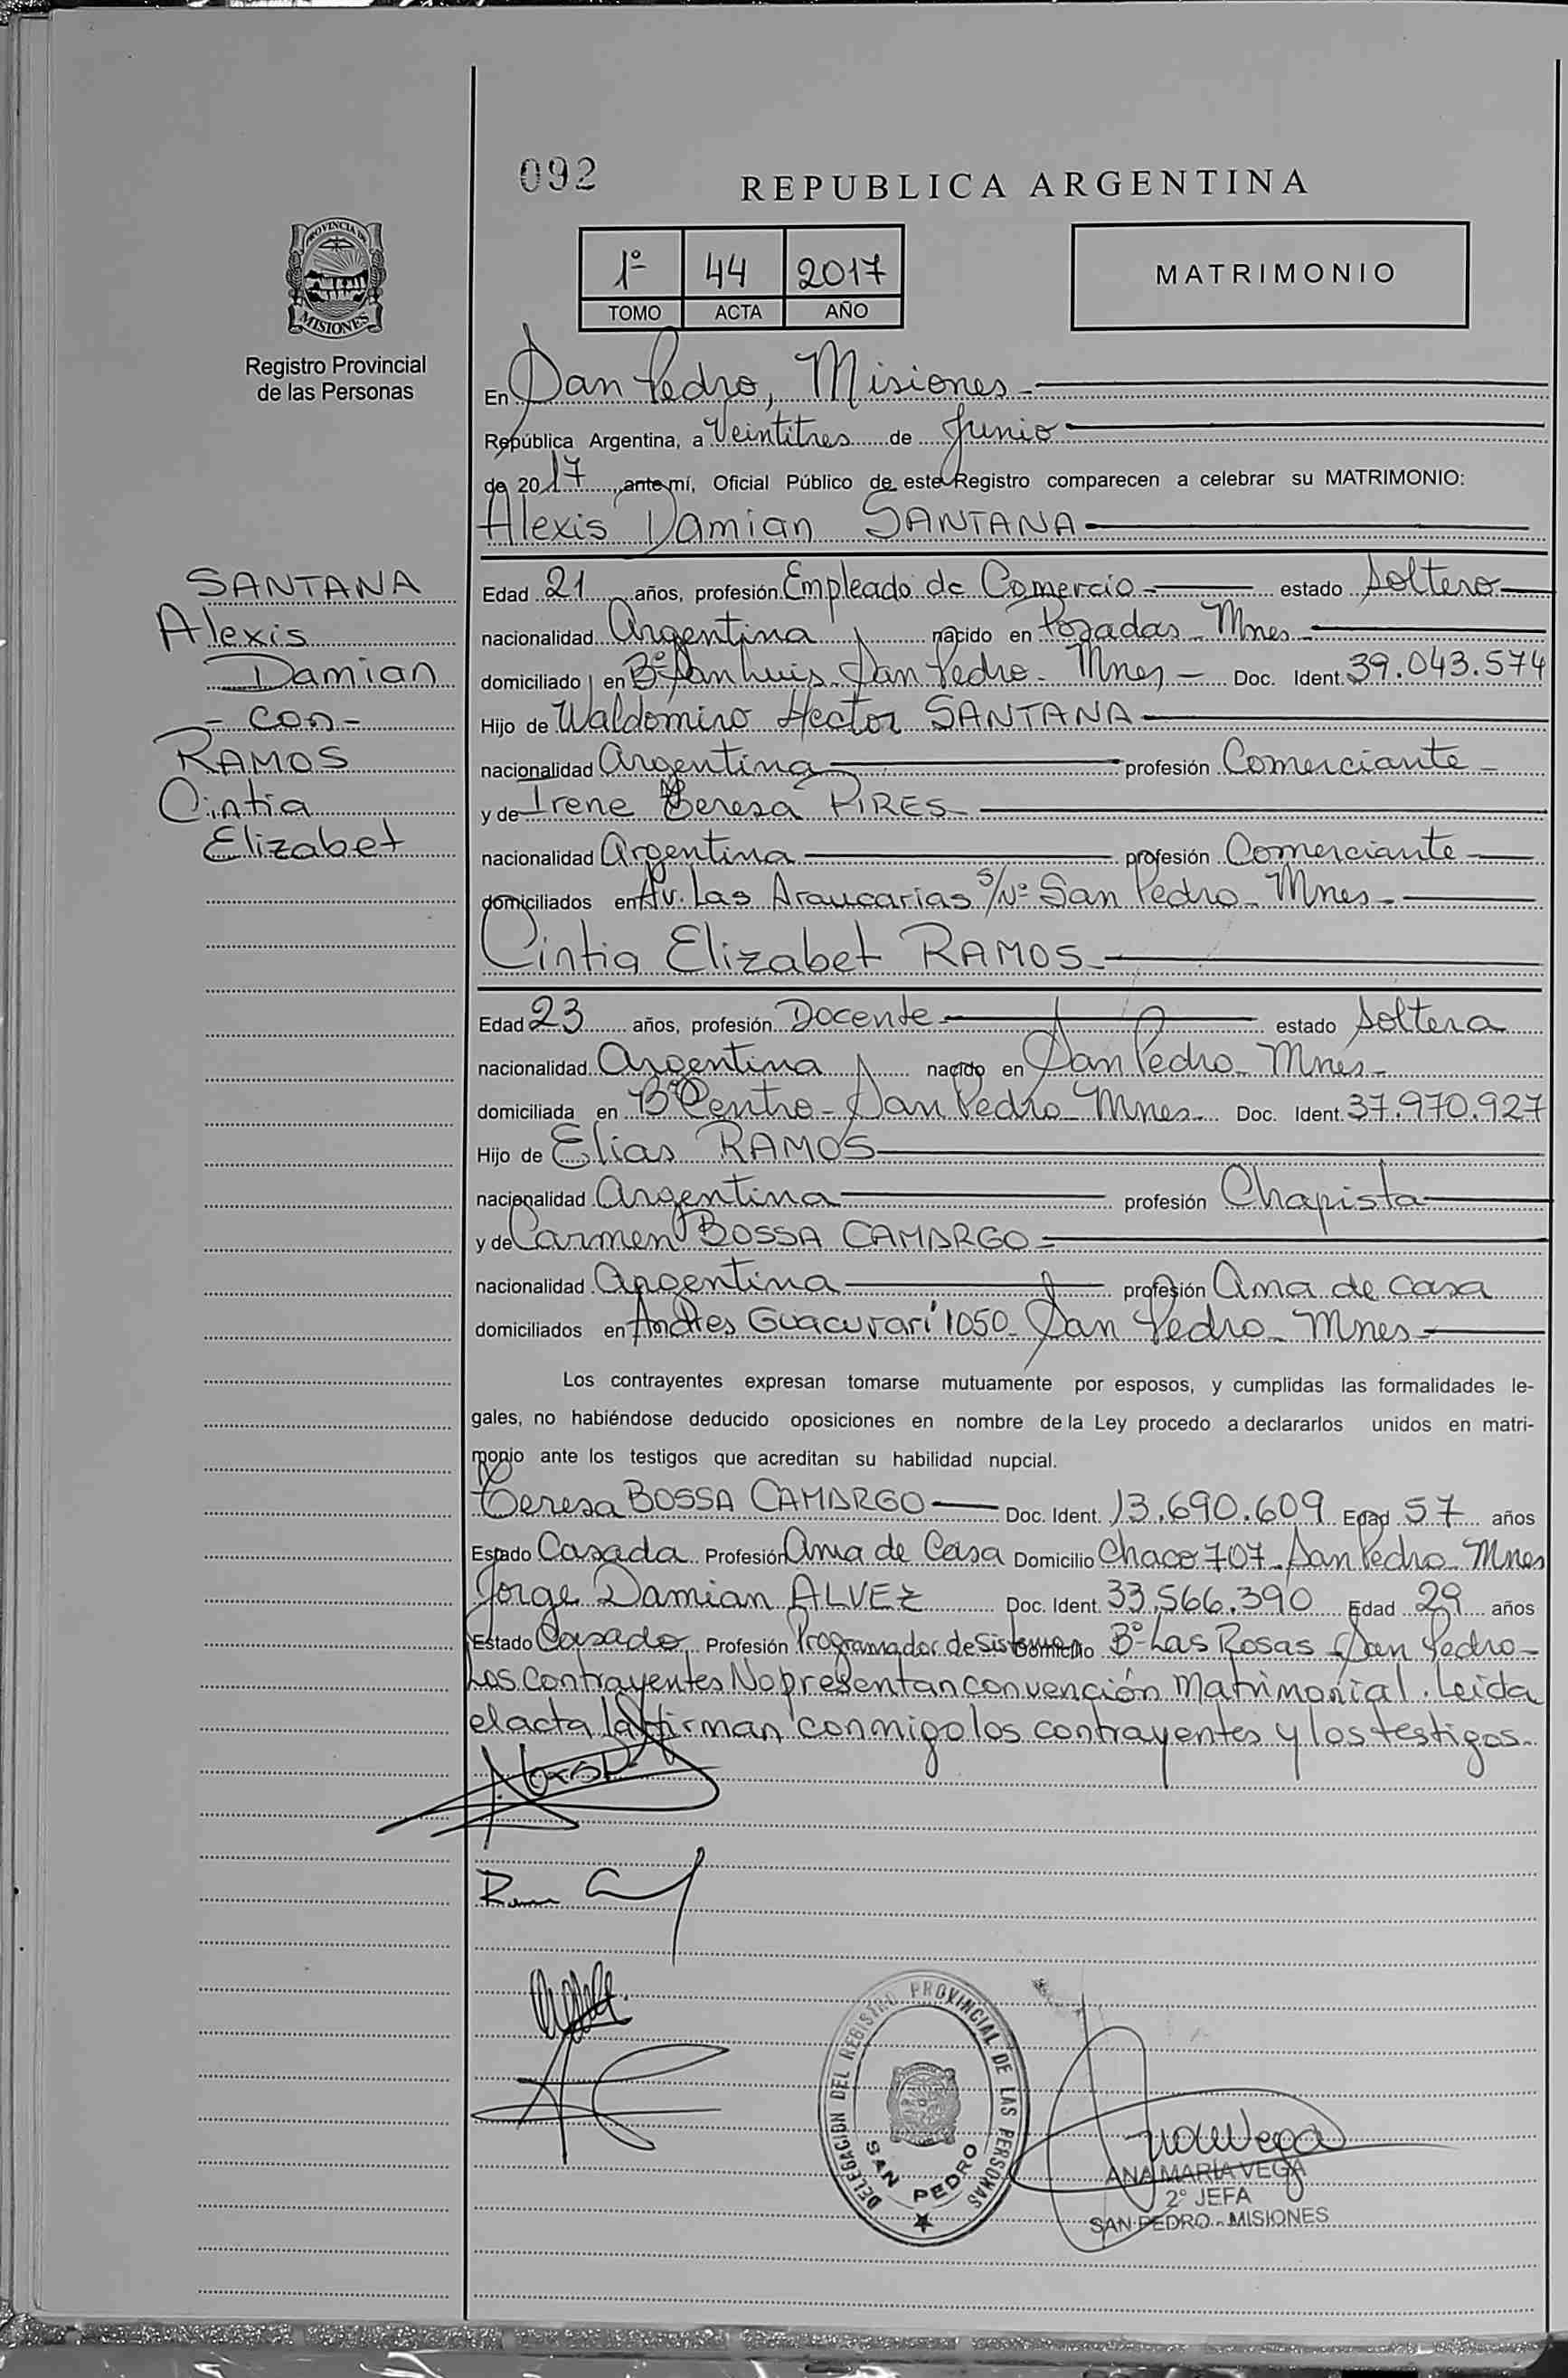 092
REPUBLICA ARGENTINA
PROVINCIA DE
MISIONES
Registro Provincial
de las Personas
1º 44 2017
TOMO ACTA AÑO
MATRIMONIO
En San Pedro, Misiones
República Argentina, a Veintitres de Junio
de 2017, ante mí, Oficial Público de este Registro comparecen a celebrar su MATRIMONIO:
Alexis Damian SANTANA
SANTANA
Alexis
Damian
- con -
RAMOS
Cintia
Elizabet
Edad 21 años, profesión Empleado de Comercio estado Soltero
nacionalidad Argentina nacido en Posadas - Mnes -
domiciliado en Bº San Luis - San Pedro - Mnes - Doc. Ident. 39.043.574
Hijo de Waldomiro Hector SANTANA
nacionalidad Argentina profesión Comerciante -
y de Irene Teresa PIRES
nacionalidad Argentina profesión Comerciante
domiciliados en Av. Las Araucarias S/Nº San Pedro - Mnes -
Cintia Elizabet RAMOS
Edad 23 años, profesión Docente estado Soltera
nacionalidad Argentina nacido en San Pedro - Mnes -
domiciliada en Bº Centro - San Pedro - Mnes - Doc. Ident. 37.970.927
Hijo de Elias RAMOS
nacionalidad Argentina profesión Chapista
y de Carmen BOSSA CAMARGO
nacionalidad Argentina profesión Ama de casa
domiciliados en Andres Guacurarí 1050 - San Pedro - Mnes -
Los contrayentes expresan tomarse mutuamente por esposos, y cumplidas las formalidades le-
gales, no habiéndose deducido oposiciones en nombre de la Ley procedo a declararlos unidos en matri-
monio ante los testigos que acreditan su habilidad nupcial.
Teresa BOSSA CAMARGO Doc. Ident. 13.690.609 Edad 57 años
Estado Casada Profesión Ama de Casa Domicilio Chaco 707 - San Pedro - Mnes
Jorge Damian ALVEZ Doc. Ident. 33.566.390 Edad 29 años
Estado Casado Profesión Programador de Sistema Domicilio Bº Las Rosas - San Pedro -
Los contrayentes No presentan convención Matrimonial. Leida
el acta la firman conmigo los contrayentes y los testigos.
DELEGACION DEL REGISTRO PROVINCIAL DE LAS PERSONAS
SAN PEDRO
ANA MARÍA VEGA
2º JEFA
SAN PEDRO - MISIONES